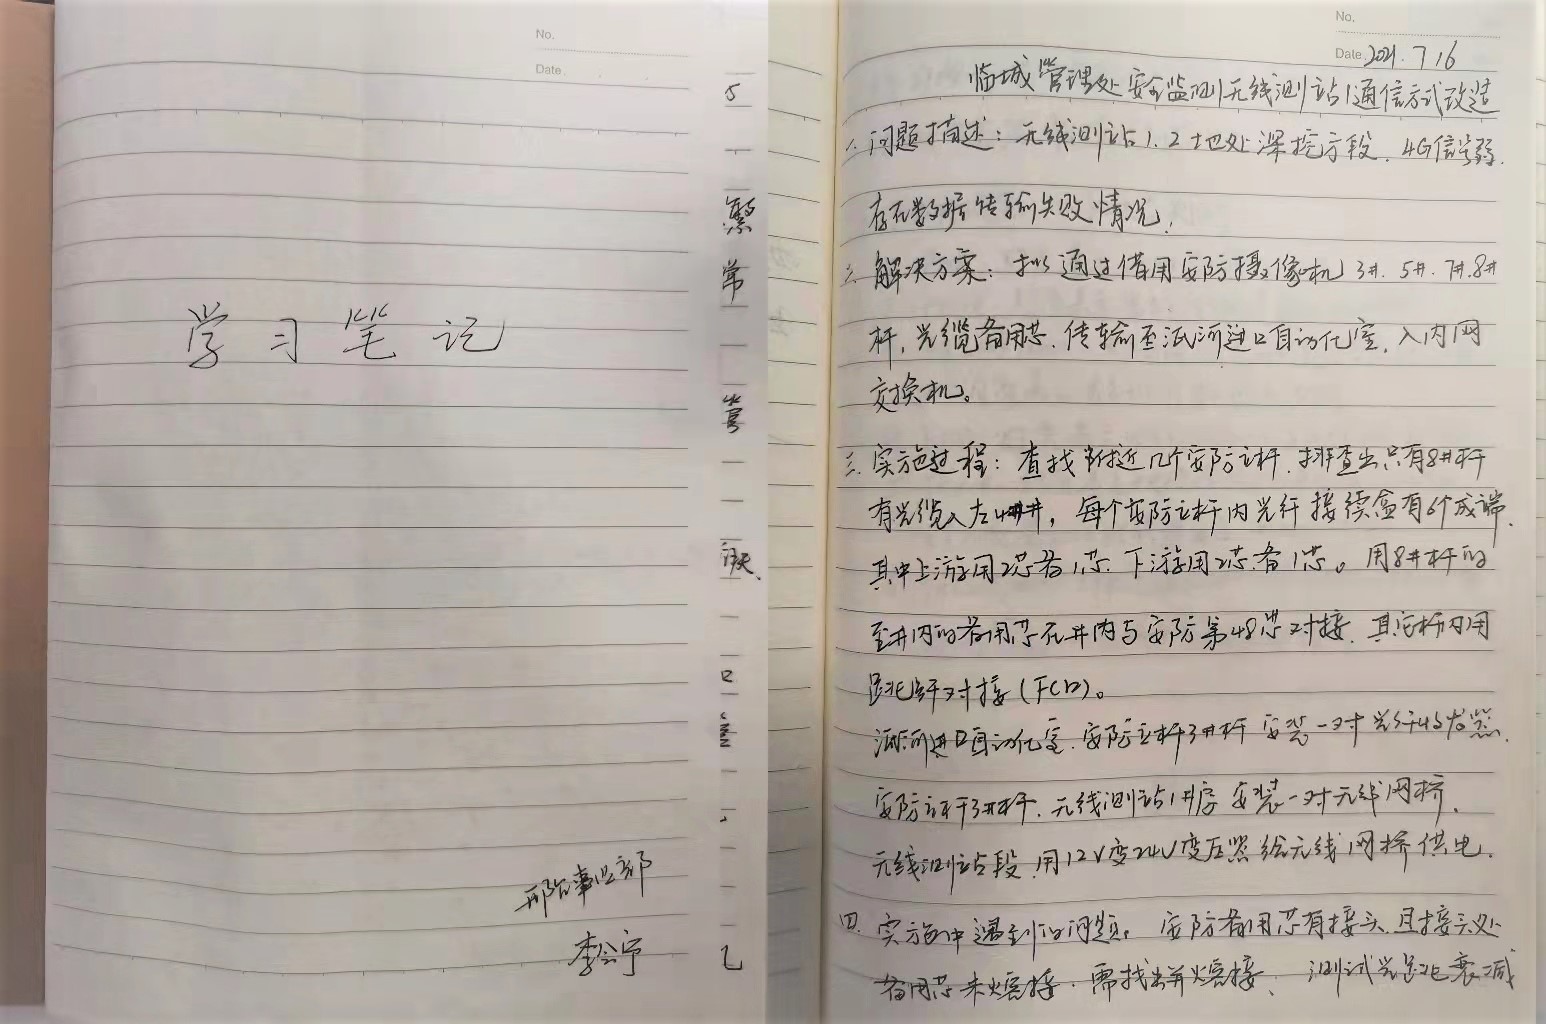 No.
Date.
学习笔记
邢台事业部
李会宁
No.
Date. 2021. 7 16
临城管理处安全监测无线测站通信方式改造
一. 问题描述：无线测站1.2地处深挖方段，4G信号弱.
存在数据传输失败情况.
二. 解决方案：拟通过借用安防摄像机 3#. 5#. 7#. 8#
杆, 光缆备用芯. 传输至泜河进口自动化室, 入内网
交换机。
三. 实施过程：查找附近几个安防立杆. 排查出只有8#杆
有光缆入左4#井, 每个安防立杆内光纤接续盒有6个成端.
其中上游用2芯备1芯. 下游用2芯备1芯。用8#杆的
至井内的备用芯在井内与安防第48芯对接. 其它杆内用
跳纤对接(FC口)。
泜河进口自动化室. 安防立杆3#杆安装一对光纤收发器.
安防立杆3#杆. 无线测站1#房安装一对无线网桥.
无线测站段 用12V变24V变压器给无线网桥供电.
四. 实施中遇到的问题。安防备用芯有接头. 且接头处
备用芯未熔接. 需找出并熔接. 测试光缆衰减